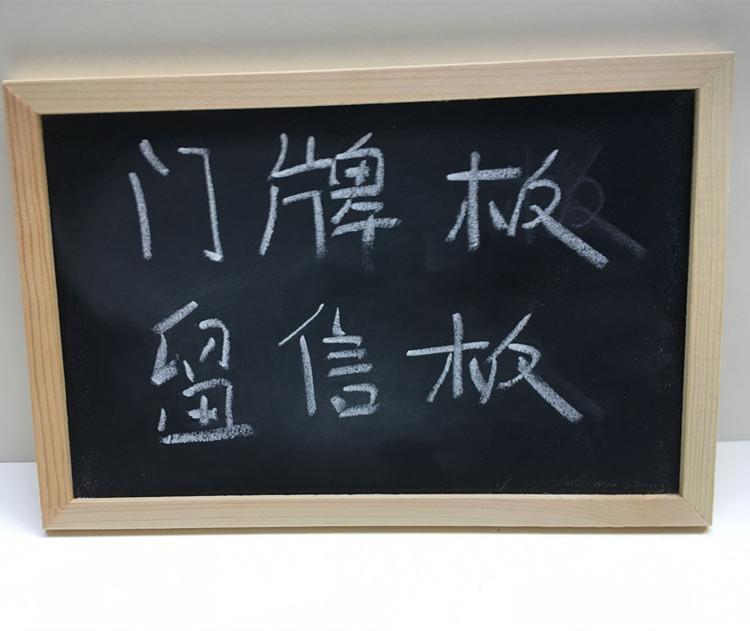 门牌板
留信板